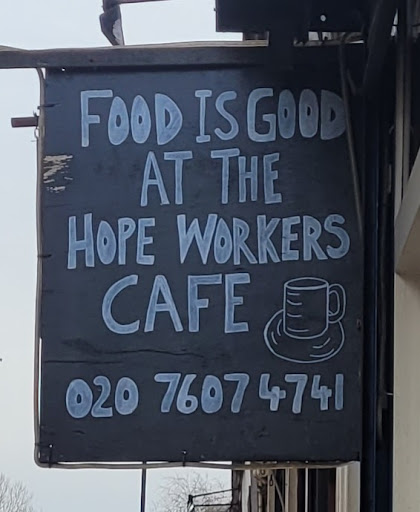 FOOD IS GOOD
AT THE
HOPE WORKERS
CAFE
020 7607 4741